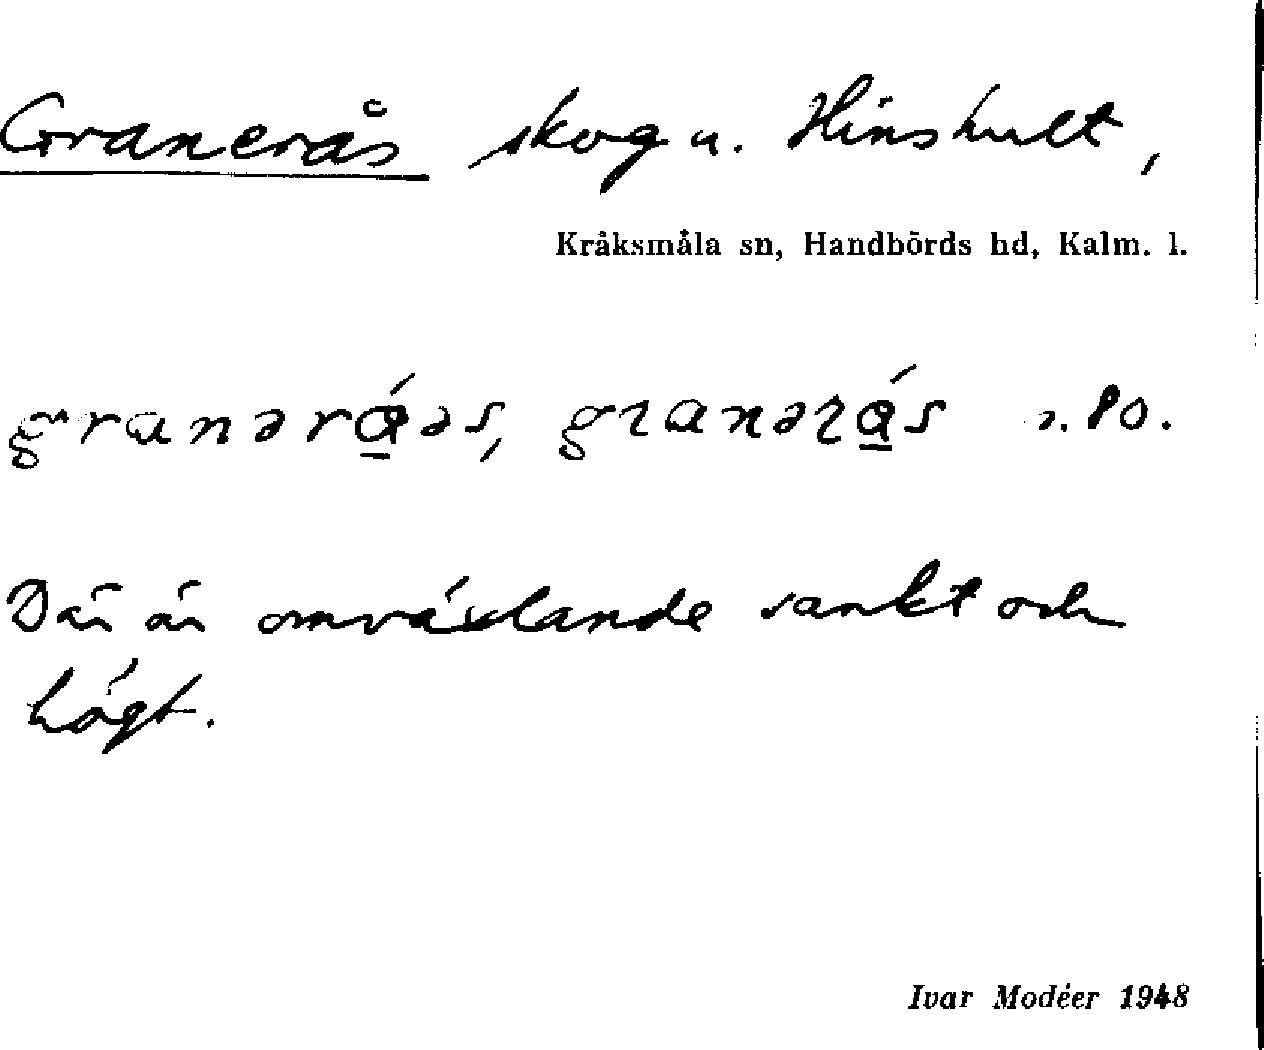 Granerås skog u. Hinshult,
Kråksmåla sn, Handbörds hd, Kalm. l.
granərά̱əs, granərά̱s s. 80.
Där är omväxlande sankt och
högt.
Ivar Modéer 1948